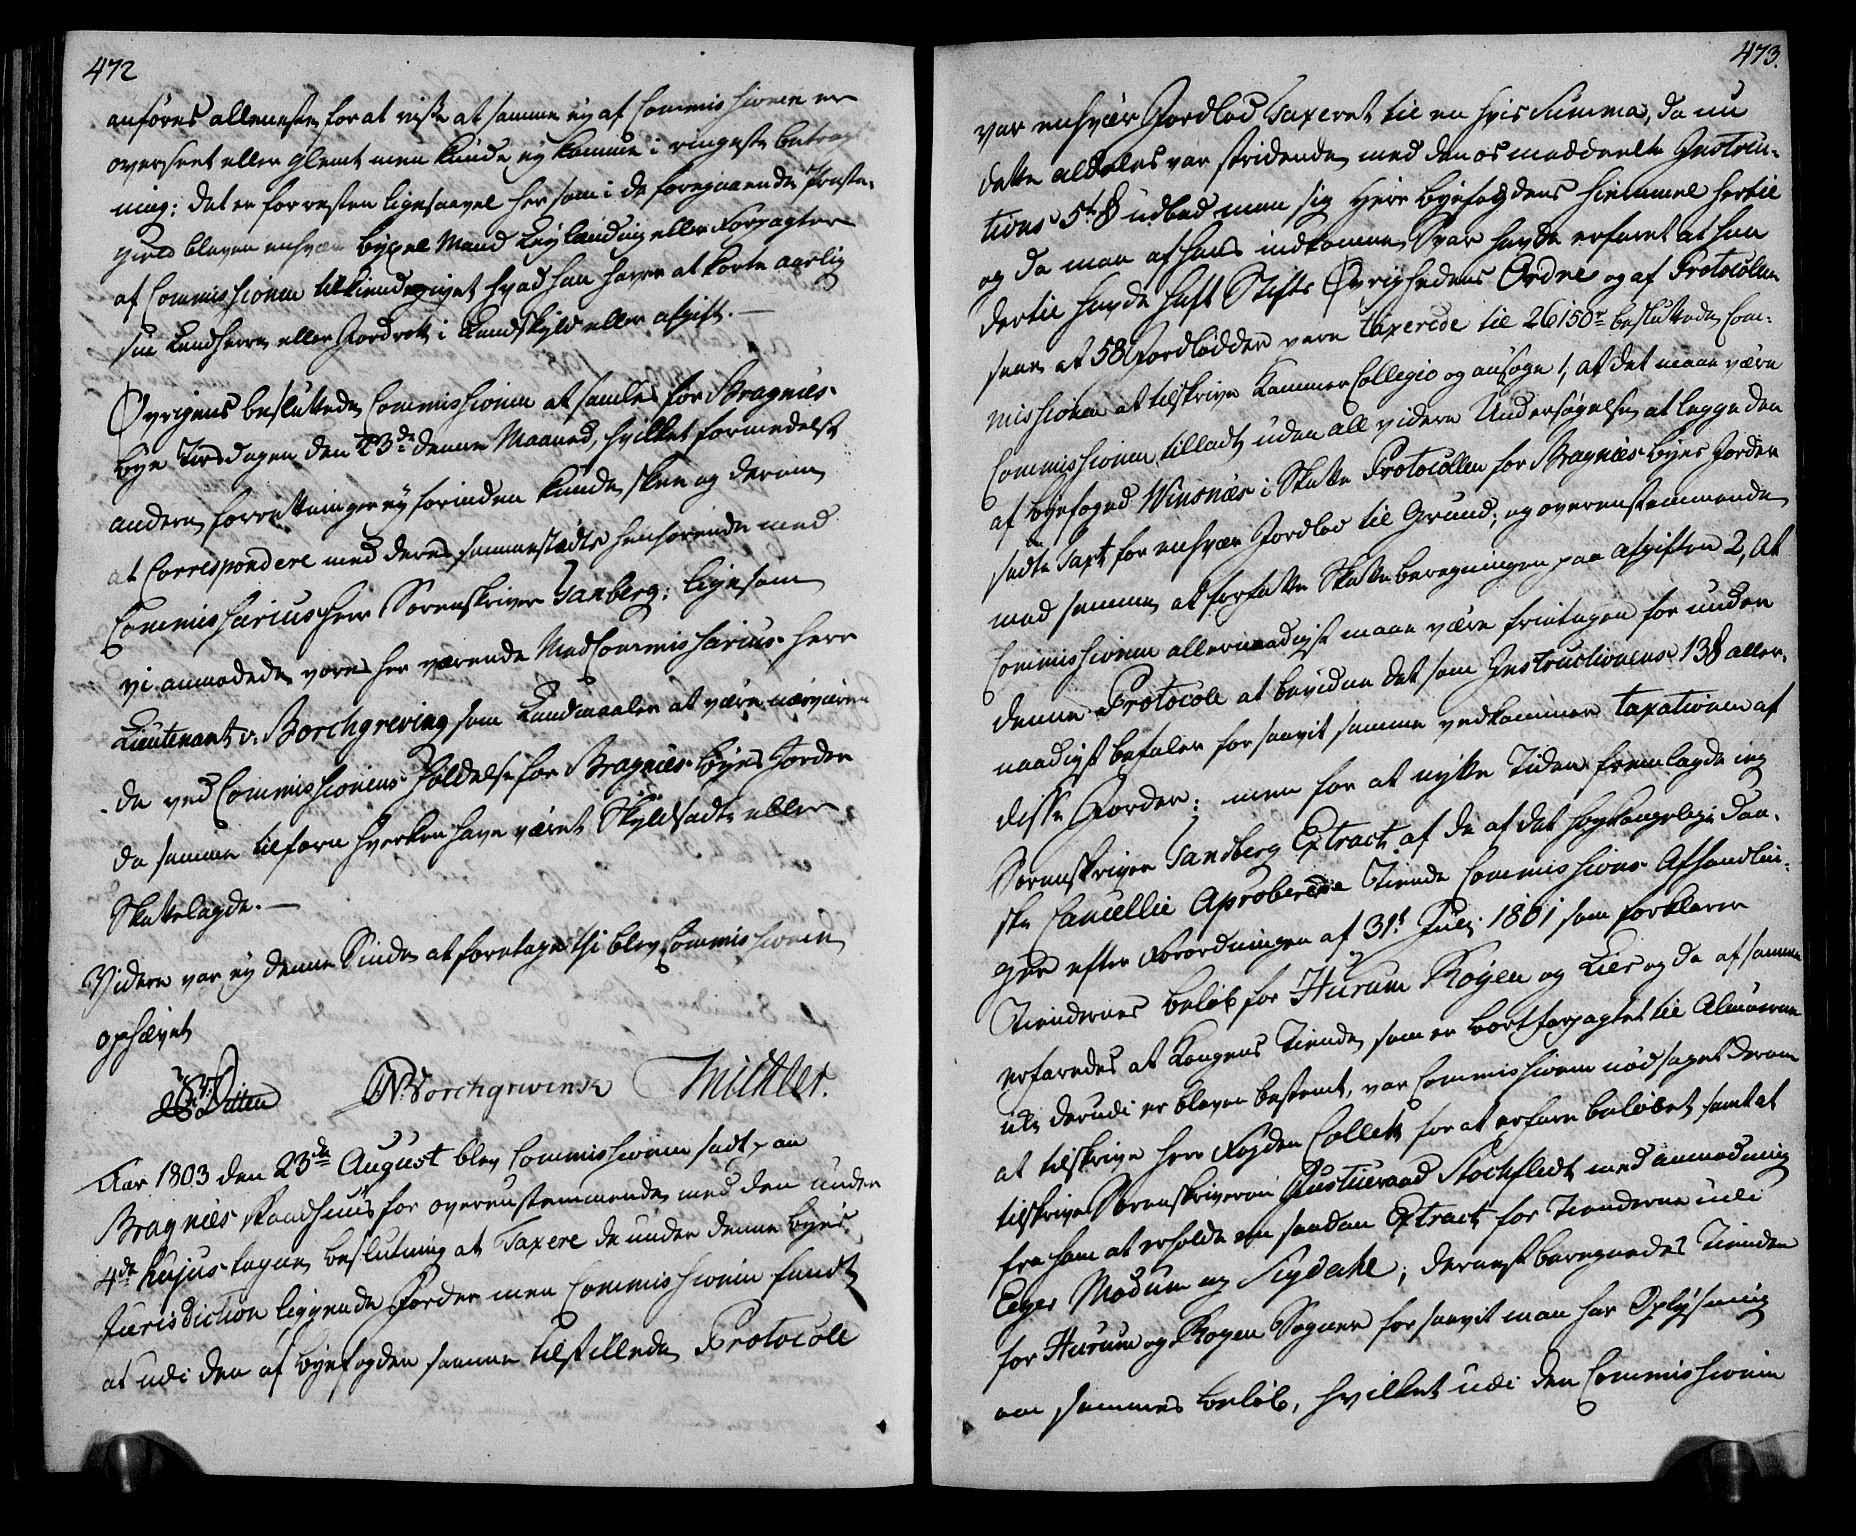 472
anføres alleneste for at viste at samme ey af Commissionen er
overseet eller glemt men kunde ey komme i ringeste betrag
ning; det er forresten ligesaavel her som i de foregaaende Præste-
gield bleven enhver bÿxel Mand Leylænding eller Forpagter
af Commissionen tilkiendegivet hvad han haver at korte aarlig
sin Landherre eller Jorddrott i Landskyld eller afgift. —
Øvrigens besluttede Commissionen at samles for Bragnæs
bye Tirsdagen den 23de denne Maaned, hvilket formedelst
andere forrettninger ey forinden kunde skee og derom
at Correspondere med deres sammestæds henhørende med
Commissarius Herr Sorenskriver Tanberg; ligesom
vi anmodede vores her værende Med Commissarius Herr
Lieutenant v. Borchgreving som Landmaaler at være nærværen
de ved Commissionens Holdelse for Bragnæs byes Jorder
da samme tilforn hverken have været Skyldsadte eller
Skattelagde. —
Videre var ey denne Sinde at foretage thi blev Commissionen
ophævet
Ditten Borchgrevink Michler.
Aar 1803 den 23de August blev Commissionen sadt paa
Bragnæs Raadhuus for overensstemmende med den under
4de hujus tagne beslutning at Taxere de under denne byes
Jurisdiction liggende Jorder men Commissionen fandt
at udi den af byefogden samme tilstillede Protocoll
473.
var enhvær Jordlod Taxeret til en vis Summa, da nu
dette aldeles var stridende med den os meddeelte Instruc-
tions 5te § udbad man sig Herr byefogdens hiemmel hertil
og da man af hans indkomne Svar havde erfaret at han
dertil havde haft Stifts Øvrighedens Ordre og af Protocollen
seer at 58 Jordlødder vare taxerede til 26150 r besluttede Com-
missionen at tilskrive Kammer Collegio og ansøge 1, at det maae være
Commissionen tilladt uden all videre Undersøgelse at legge den
af byefoged Winsnæs i Skatte Protocollen for Bragnæs byes Jorder
sadte Taxt for enhver Jordlod til Grund; og overenstemmende
med samme at forfatte Skatteberegningen paa afgiften 2, At
Commissionen allernaadigst maae være fritagen for under
denne Protocoll at bevidne det som Instructionens 13 § aller-
naadigst befaler forsaavit samme vedkommer taxationen af
disse Jorder; men for at nytte Tiden fremlagde ieg
Sorenskriver Tandberg Extract af de af det høykongelige Dan-
ske Cancellie Aproberede Tiende Commissions Afhandlin-
ger efter Forordningen af 31t Julj 1801 som forklarer
Tiendernes beløb for Hurum Røyen og Lier og da af samme
erfaredes at Kongens Tiende som er bortforpagtet til Almuerne
ei derudi er bleven bestemt, var Commissionen nødsaget derom
at tilskrive Herr Fogden Collett for at erfare beløbet samt at
tilskrive Sorenskriveren Justitsraad Stockfledt med anmodning
fra ham at erholde en saadan Extract for Tienderne udi
Eeger Modum og Sigdahl; dernest beregnedes Tienden
for Hurum og Røyen Sogner forsaavit man har Oplÿsning
om sammes beløb, hvilket udi den Commissionen